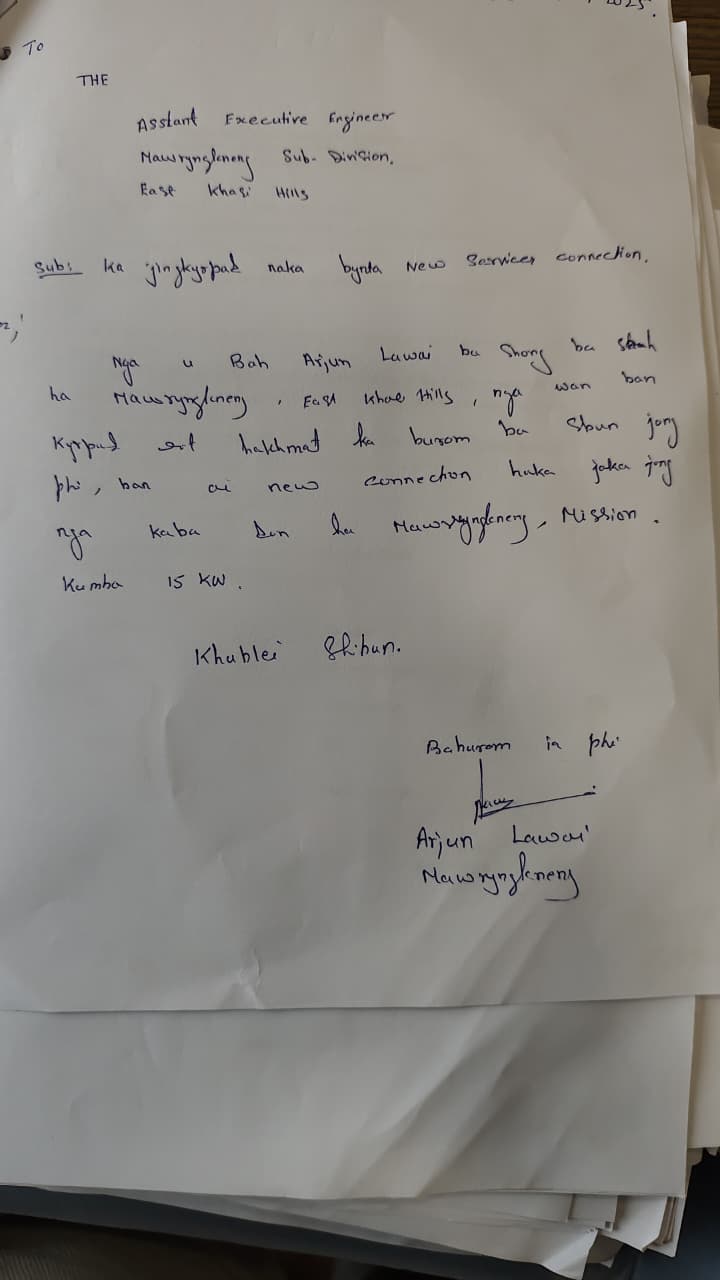 2025.
To
THE
Asstant Executive Engineer
Mawryngkneng Sub-Division,
East Khasi Hills
Sub: Ka jingkyrpad naka bynta New Services connection.
Nga u Bah Arjun Lawai ba Shong ba sah
ha Mawryngkneng, East Khasi Hills, nga wan ban
Kyrpad hakhmat ka burom ba Sbun jong
phi, ban ai new connection haka jaka jong
nga kaba Don ha Mawryngkneng, Mission.
Kumba 15 KW.
Khublei Shibun.
Baburom ia phi
Arjun Lawai
Mawryngkneng